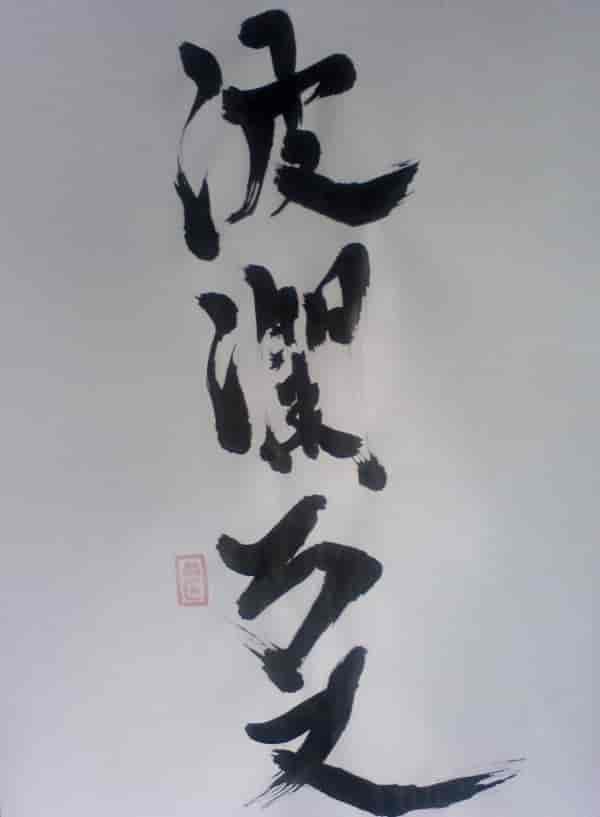 波瀾万丈